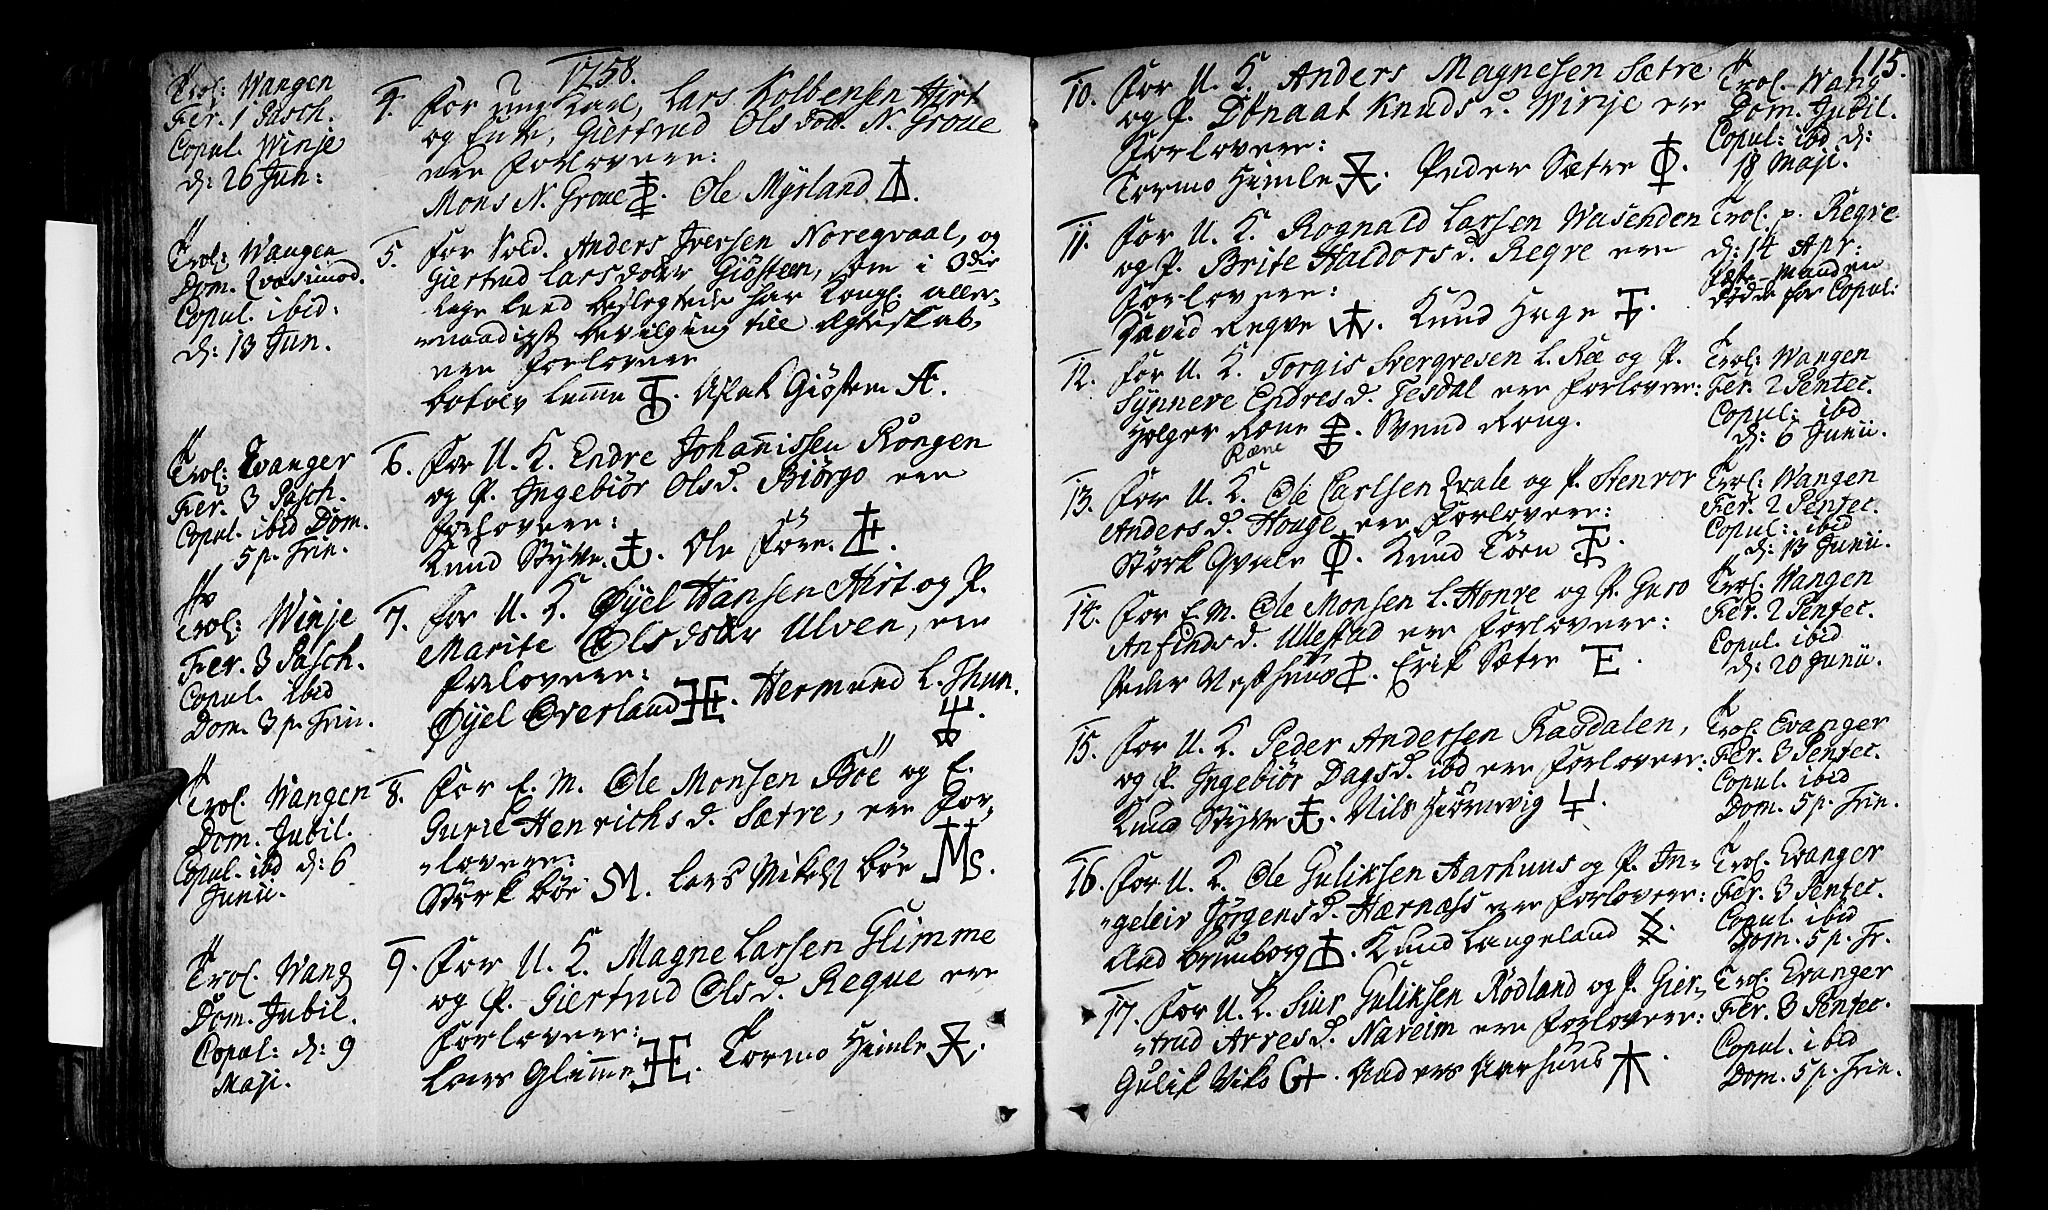 1758.
Trol: Wangen
Fer. 1 Pasch.
Copul. Winje
d: 26 Jun:
4. For ung Karl, Lars Kolbensen Hirt
og Enke, Giertrud Olsdott. N. Groue
ere Forlovere:
Mons N. Groue. Ole Myrland.
Trol: Wangen
Dom. Qvasimod.
Copul. ibid:
d: 13 Jun.
5. For Sold. Anders Iversen Noregvaal, og
Giertrud Larsdotter Giøsteen, som i 3die
Leed beslegtede har Kongl. aller-
naadigst bevilgning till Ægteskab,
ere Forlovere
Lemme. Aslak Giøsteen
Trol: Evanger
Fer. 3 Pasch.
Copul. ibid Dom.
5 p. Trin.
6. For U. K. Endre Johanissen Rongen
og P. Ingebiør Olsd. Biørgo ere
Forlovere:
Knud Styve. Ole Føre.
Trol: Winje
Fer. 3 Pasch.
Copul. ibid
Dom. 3 p. Trin.
7. For U. K. Øyel Hansen Hirt og P.
Marite Olsdotter Ulven, ere
Forlovere:
Øyel Overland. Hermund L. Thun.
Trol. Wangen
Dom. Jubil.
Copul. ibd d: 6
Junii.
8. For E. M. Ole Monsen Böe og E.
Gurie Henrichs d. Sætre, ere For-
lovere:
Størk böe SM. Lars Mikels böe Ms.
Trol. Wang
Dom. Jubil.
Copul: d: 9
Maji.
9. For U. K. Magne Larsen Glimme
og P. Giertrud Olsd. Reque ere
Forlovere:
Lars Glimme. Tormo Himle.
115.
10. For U. K. Anders Magnesen Sætre
og P. Dönaat Knuds d. Winje ere
Forlovere:
Tormo Himle. Peder Sætre.
Trol. Wang
Dom. Jubil.
Copul: ibd d:
18 Maji.
11. For U. K. Rognald Larsen Wasenden
og P. Brite Haldors d. Reqve ere
Forlovere:
David Reqve. Knud Hæge.
Trol. p. Reqve
d: 14 Apr:
Manden
døde før Copul:
12. For U. K. Torgis L. Ree og P.
Synneve Endres d. Tesdal ere Forlovere:
Holger Rene. Svend Rong.
Ræne
Trol: Wangen
Fer. 2 Pentec.
Copul: ibd
d: 6 Junii.
13. For U. K. Ole Carlsen Qvale og P. Stenvor
Anders d. Houge ere Forlovere:
Størk Qvale. Knud Tøen.
Trol: Wangen
Fer. 2 Pentec.
Copul: ibid
d: 13 Junii.
14. For E. M. Ole Monsen L. Honve og P. Guro
Anfinds d. Ullestad ere Forlovere:
Peder Vesthuus. Erik Sætre E.
Trol. Wangen
Fer. 2 Pentec.
Copul. ibid
d: 20 Junii.
15. For U. K. Peder Andersen Rasdalen,
og P. Ingebiør Dagsd. ibd ere Forlovere:
Knud Styve. Nils Hiørnevig.
Trol. Evanger
Fer. 3 Pentec.
Copul. ibid
Dom. 5 p. Trin.
16. For U. K. Ole Guliksen Aarhuus og P. In-
geleiv Jörgens d. Hærnæss ere Forlovere:
Aad Brunborg. Knud Langeland.
Trol. Evanger
Fer. 3 Pentec.
Copul. ibid
Dom. 5 p. Tr.
17. For U. K. Siur Guliksen Rödland og P. Gier-
trud Arves d. Nareim ere Forlovere:
Gulik Viks. Anders Aarhuus.
Trol. Evanger
Fer. 3 Pentec.
Copul. ibid
Dom. 5 p. Trin.